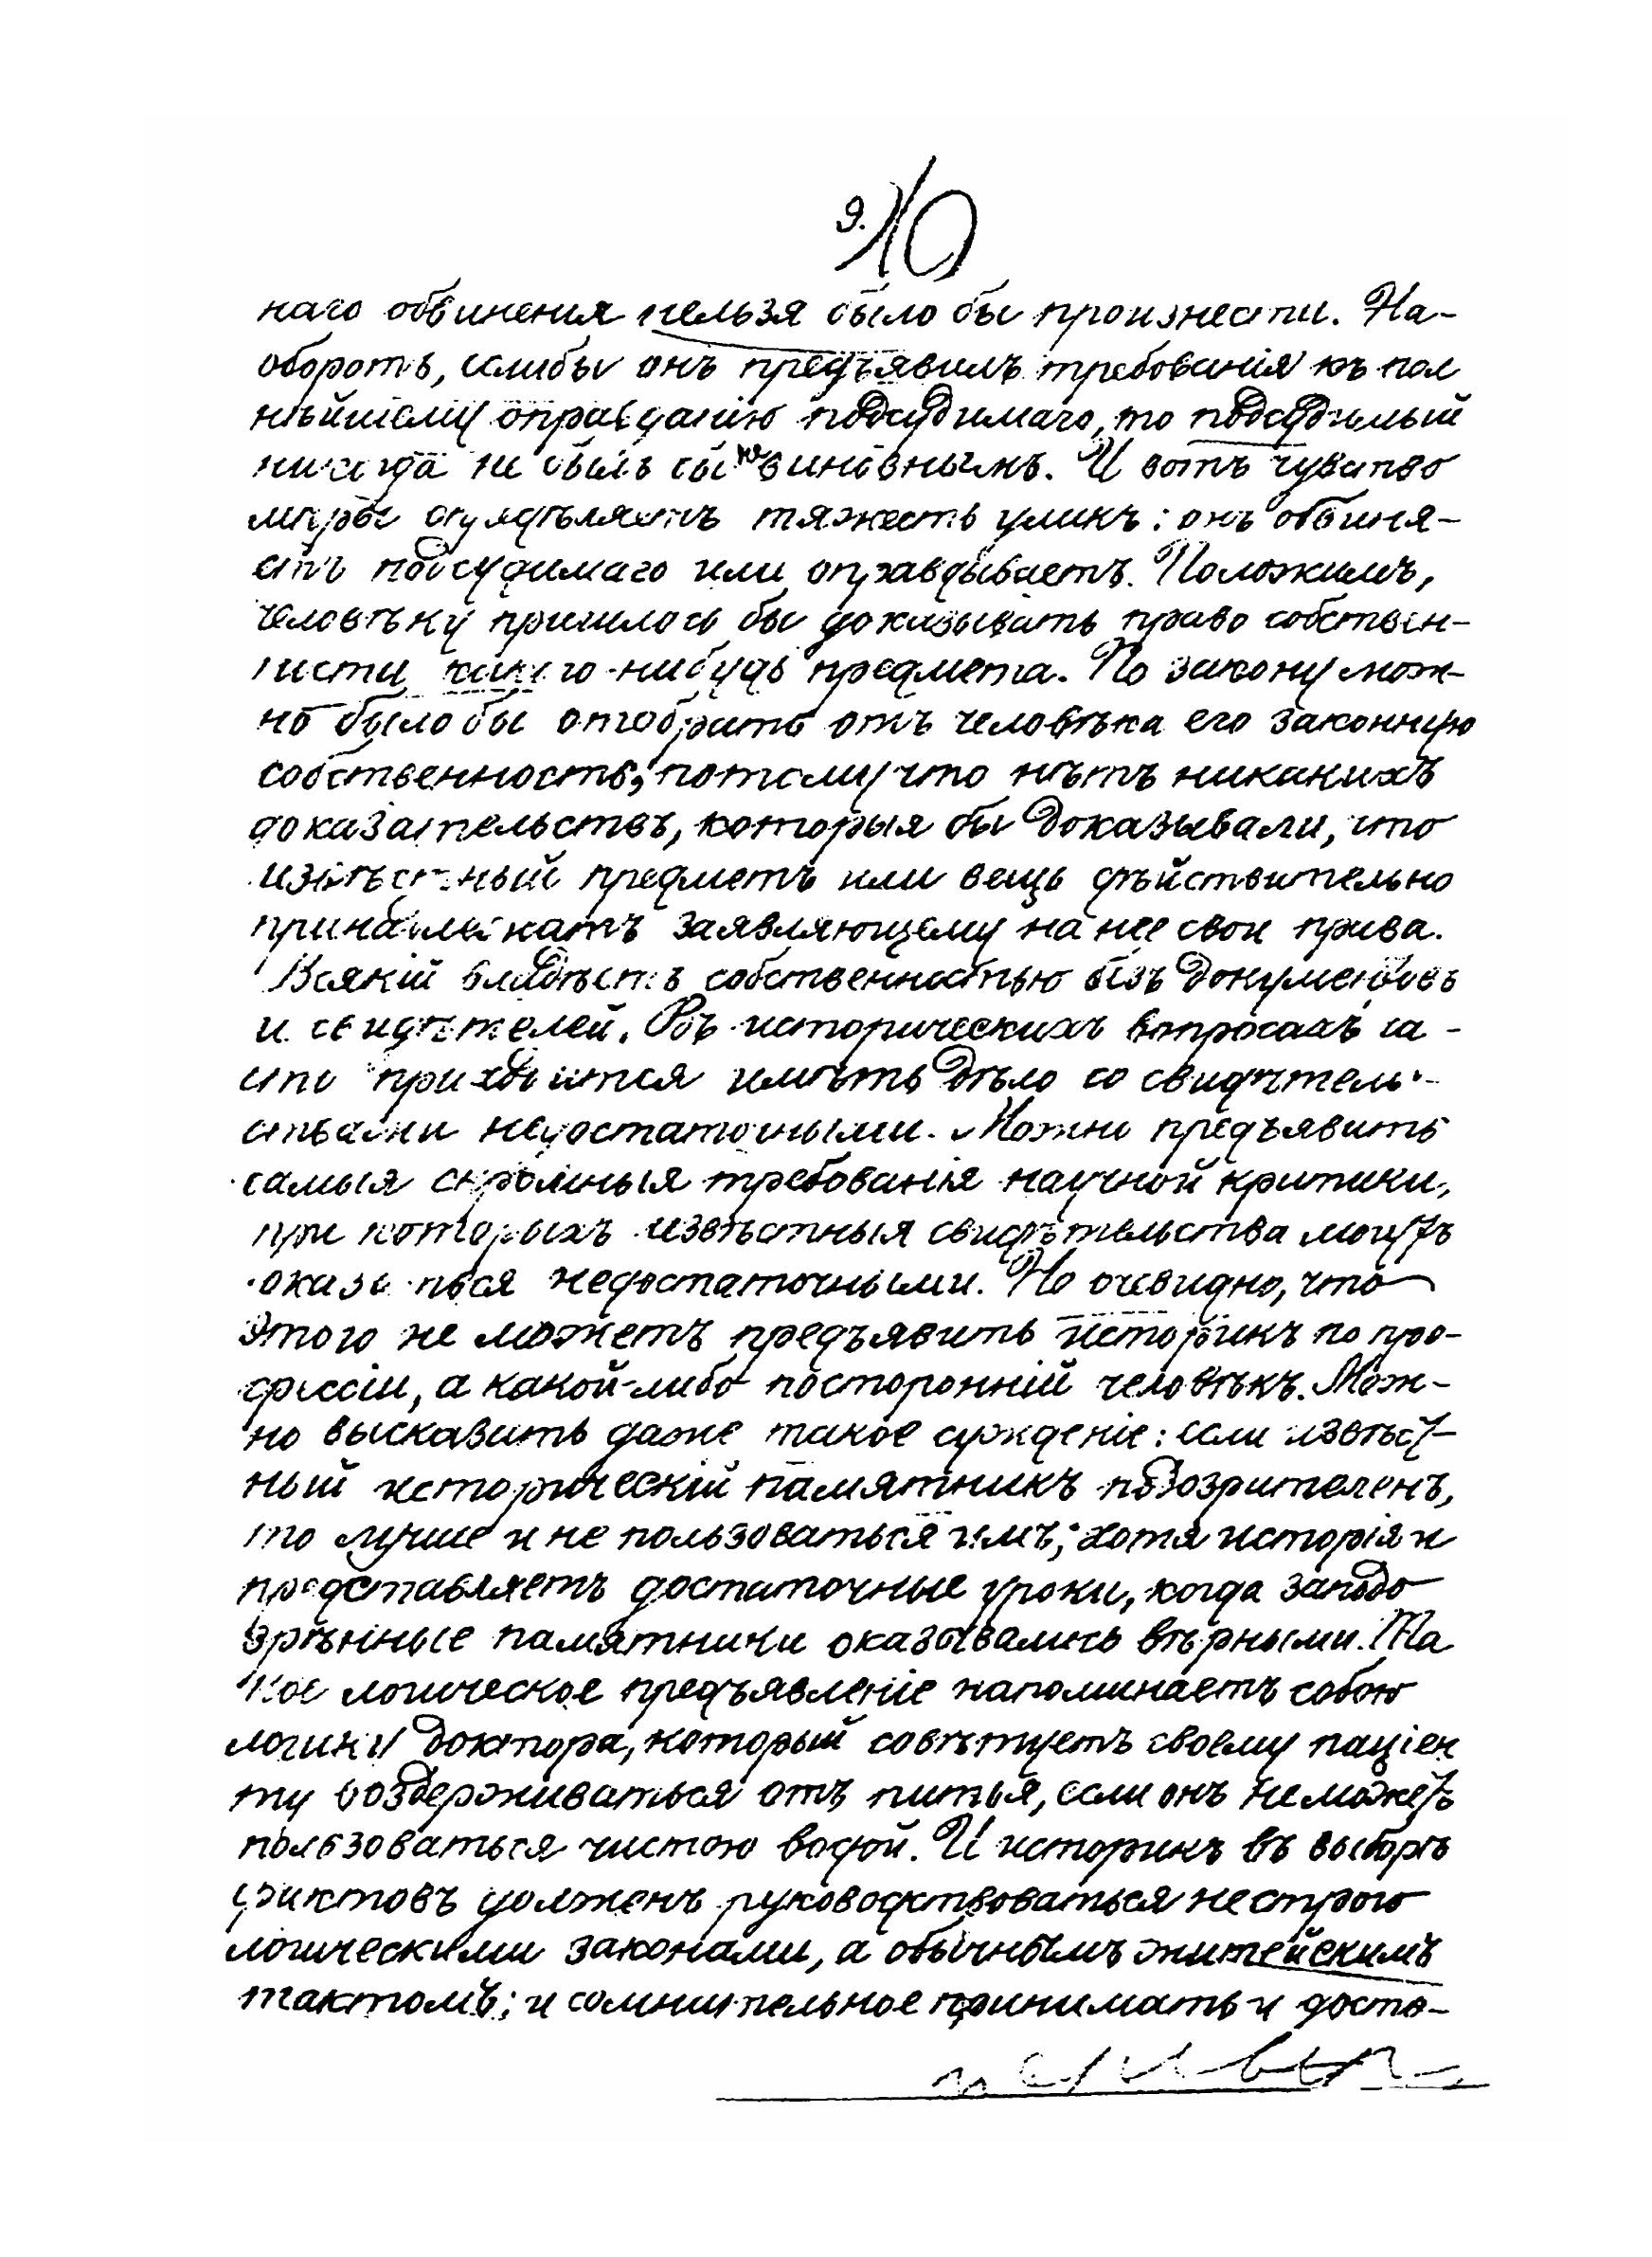 9. 10
наго обвиненія нельзя было бы произнести. На-
оборотъ, еслибы онъ предъявилъ требованія къ пол
нѣйшему оправданію подсудимаго, то подсудимый
никогда не былъ бы виновнымъ. И вотъ чувство
мѣры опредѣляетъ тяжесть уликъ: онъ обвиня-
етъ подсудимаго или оправдываетъ. Положимъ,
человѣку пришлось бы доказывать право собствен-
ности какого-нибудь предмета. По закону мож-
но было бы отобрать отъ человѣка его законную
собственность, потому что нѣтъ никакихъ
доказательствъ, которыя бы доказывали, что
извѣстный предметъ или вещь дѣйствительно
принадлежатъ заявляющему на нее свои права.
Всякій владѣетъ собственностью безъ документовъ
и свидѣтелей. Въ историческихъ вопросахъ ча-
сто приходится имѣть дѣло со свидѣтель-
ствами недостаточными. Можно предъявить
самыя скромныя требованія научной критики,
при которыхъ извѣстныя свидѣтельства могутъ
оказаться недостаточными. Но очевидно, что
этого не можетъ предъявить историкъ по про-
фессіи, а какой-либо посторонній человѣкъ. Мож-
но высказать даже такое сужденіе: если извѣст-
ный историческій памятникъ подозрителенъ,
то лучше и не пользоваться имъ; хотя исторія и
представляетъ достаточные уроки, когда заподо
зрѣнные памятники оказывались вѣрными. Та
кое логическое предъявленіе напоминаетъ собою
логику доктора, который совѣтуетъ своему паціен
ту воздерживаться отъ питья, если онъ не можетъ
пользоваться чистою водой. И историкъ въ выборѣ
фактовъ долженъ руководствоваться не строго
логическими законами, а обычнымъ житейскимъ
тактомъ; и сомнительное принимать и досто-